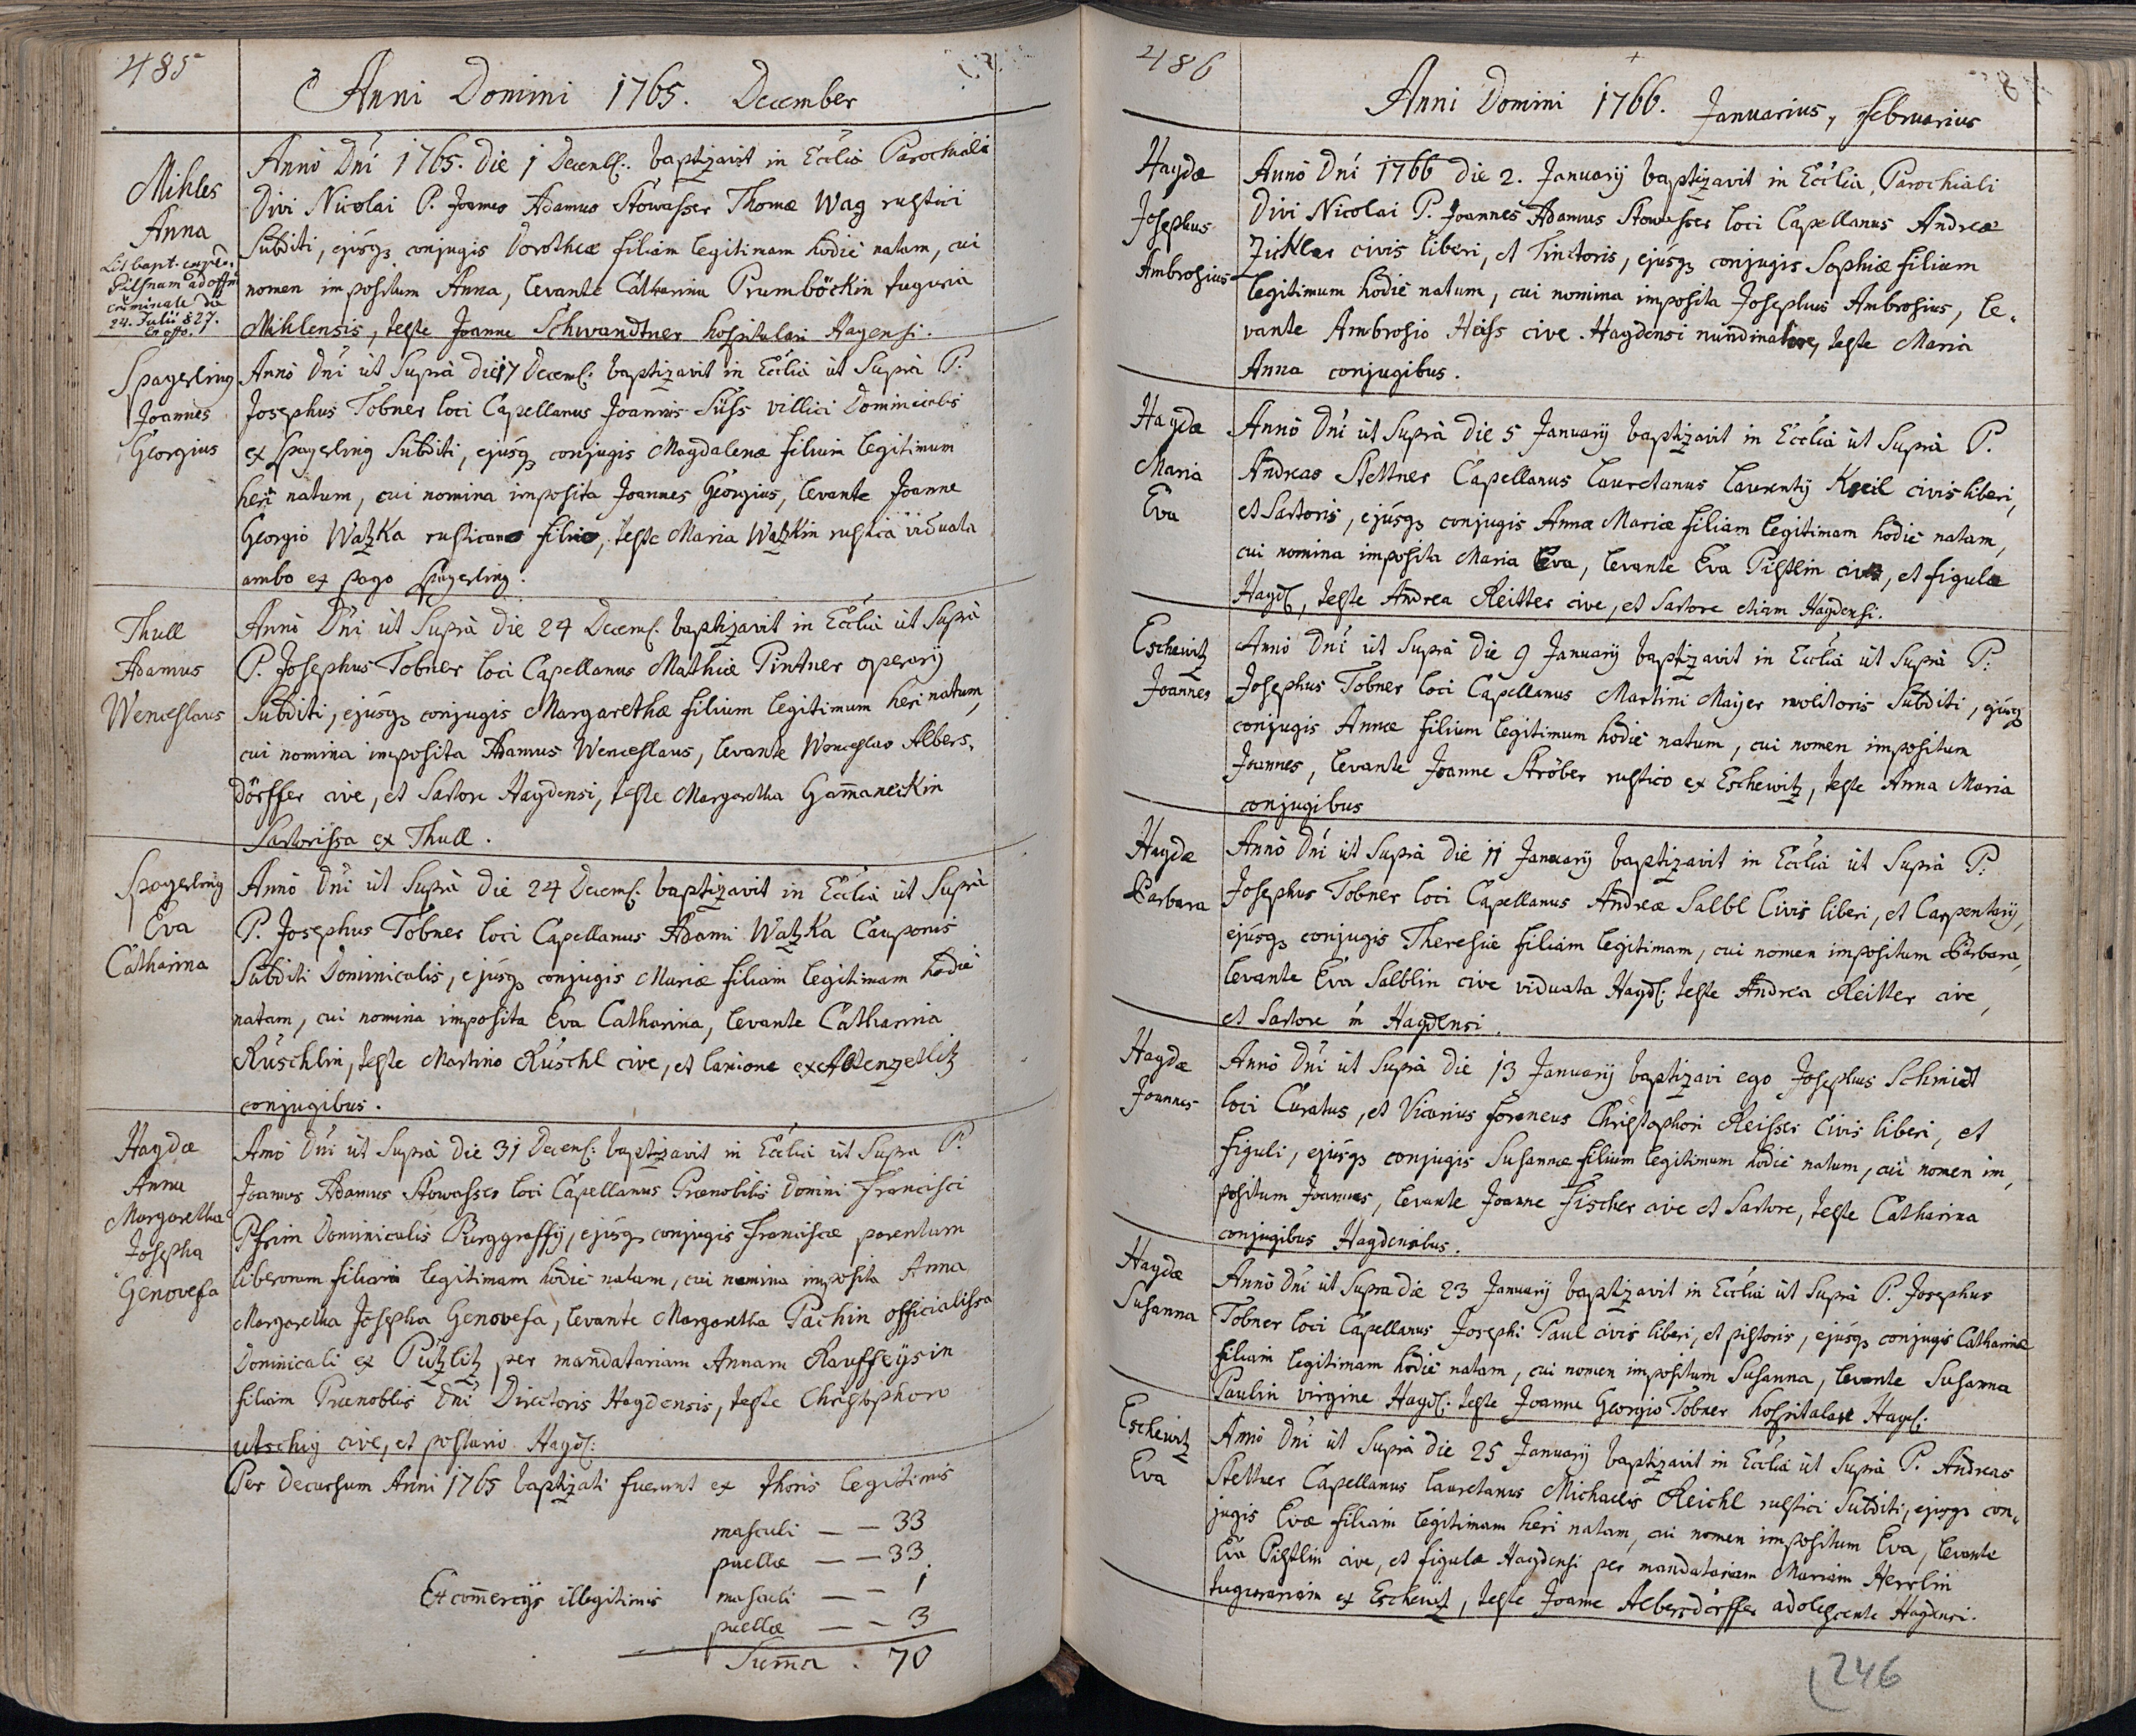 485
Anni Domini 1765. December
Mihles
Anna
Lit bapt. expe.
Pilsnam ad offm
criminale die
24. Julii 827.
ex offo.
Anno Dni 1765. die 1 Decemb: baptizavit in Ecclia Parochiali
Divi Nicolai P. Joannes Adamus Stowasser Thomæ Wag rustici
Subditi, ejusq conjugis Dorotheæ filiam legitimam hodie natam, cui
nomen impositum Anna, levante Catharina Prumböckin tuguria
Mihlensis, teste Joanne Schwandtner hospitalari Hagensi.
Spagerling
Joannes
Georgius
Anno Dni ut Supra die 17 Decemb: baptizavit in Ecclia ut Supra P:
Josephus Tobner loci Capellanus Joannis Süss villici Dominicalis
ex Spagerling Subditi, ejusq conjugis Magdalenæ filium legitimum
heri natum, cui nomina imposita Joannes Georgius, levante Joanne
Georgio Watzka rusticano filio, teste Maria Watzkin rustica viduata
ambo ex pago Spagerling.
Thull
Adamus
Wenceslaus
Anno Dni ut Supra die 24 Decemb: baptizavit in Ecclia ut Supra
P. Josephus Tobner loci Capellanus Mathiæ Pintner operarij
Subditi, ejusq conjugis Margarethæ filium legitimum heri natum,
cui nomina imposita Adamus Wenceslaus, levante Wenceslao Albers-
dörffer cive, et Sartore Haydensi, teste Margaretha Gamaneckin
Sartorissa ex Thull.
Spagerling
Eva
Catharina
Anno Dni ut Supra die 24 Decemb: baptizavit in Ecclia ut Supra
P. Josephus Tobner loci Capellanus Adami Watzka Cauponis
Subditi Dominicalis, ejusq conjugis Mariæ filiam legitimam hodie
natam, cui nomina imposita Eva Catharina, levante Catharina
Rüschlin, teste Martino Rüschl cive, et lanione ex Altenzetlitz
conjugibus.
Haydæ
Anna
Margaretha
Josepha
Genovefa
Anno Dni ut Supra die 31 Decemb: baptizavit in Ecclia ut Supra P.
Joannes Adamus Stowasser loci Capellanus Prænobilis Domini Francisci
Pfrim Dominicalis Burggraffij, ejusq conjugis Franciscæ parentum
liberorum filiam legitimam hodie natam, cui nomina imposita Anna
Margaretha Josepha Genovefa, levante Margaretha Pachin officialissa
Dominicali ex Putzlitz per mandatariam Annam Rauffeysin
filiam Prænobilis Dni Directoris Haydensis, teste Christophoro
Utschig cive, et postario Hayd:
Per decursum Anni 1765 baptizati fuerunt ex thoris legitimis
masculi — — 33
puellæ — — 33
Ex comercijs illegitimis masculi — — 1
puellæ — — 3
Suma . 70
486
Anni Domini 1766. Januarius, Februarius
Haydæ
Josephus
Ambrosius
Anno Dni 1766 die 2. Januarij baptizavit in Ecclia Parochiali
Divi Nicolai P. Joannes Adamus Stowasser loci Capellanus Andreæ
Zickler civis liberi, et Tinctoris, ejusq conjugis Sophiæ filium
legitimum hodie natum, cui nomina imposita Josephus Ambrosius, le-
vante Ambrosio Heiss cive Haydensi nundinatore, teste Maria
Anna conjugibus.
Haydæ
Maria
Eva
Anno Dni ut Supra die 5 Januarij baptizavit in Ecclia ut Supra P.
Andreas Stettner Capellanus Lauretanus Laurentij Kreil civis liberi,
et Sartoris, ejusq conjugis Annæ Mariæ filiam legitimam hodie natam,
cui nomina imposita Maria Eva, levante Eva Pistlin cive, et figula
Hayd:, teste Andrea Reitter cive, et Sartore etiam Haydensi.
Eschewitz
Joannes
Anno Dni ut Supra die 9 Januarij baptizavit in Ecclia ut Supra P:
Josephus Tobner loci Capellanus Martini Maijer molitoris Subditi, ejusq
conjugis Annæ filium legitimum hodie natum, cui nomen impositum
Joannes, levante Joanne Ströber rustico ex Eschewitz, teste Anna Maria
conjugibus
Haydæ
Barbara
Anno Dni ut Supra die 11 Januarij baptizavit in Ecclia ut Supra P:
Josephus Tobner loci Capellanus Andreæ Salbl Civis liberi, et Carpentarij,
ejusq conjugis Theresiæ filiam legitimam, cui nomen impositum Barbara,
levante Eva Salblin cive viduata Hayd: teste Andrea Reitter cive,
et Sartore in Haydensi.
Haydæ
Joannes
Anno Dni ut Supra die 13 Januarij baptizavi ego Josephus Schmidt
loci Curatus, et Vicarius foraneus Christophori Reisser Civis liberi, et
figuli, ejusq conjugis Susannæ filium legitimum hodie natum, cui nomen im-
positum Joannes, levante Joanne Fischer cive et Sartore, teste Catharina
conjugibus Haydensibus.
Haydæ
Susanna
Anno Dni ut Supra die 23 Januarij baptizavit in Ecclia ut Supra P. Josephus
Tobner loci Capellanus Josephi Paul civis liberi, et pistoris, ejusq conjugis Catharinæ
filiam legitimam hodie natam, cui nomen impositum Susanna, levante Susanna
Paulin virgine Hayd: teste Joanne Georgio Tobner hospitalare Hayd:
Eschewitz
Eva
Anno Dni ut Supra die 25 Januarij baptizavit in Ecclia ut Supra P. Andreas
Stettner Capellanus Lauretanus Michaelis Reichl rustici Subditi, ejusq con-
jugis Evæ filiam legitimam heri natam, cui nomen impositum Eva, levante
Eva Pistlin cive, et figula Haydensi per mandatariam Mariam Herrlin
tugurariam ex Eschewitz, teste Joanne Albersdörffer adolescente Haydensi.
246